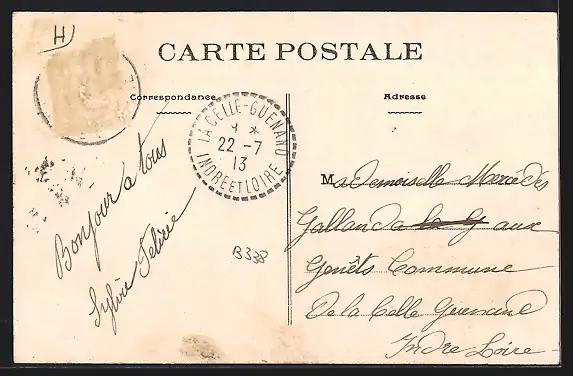 H
CARTE POSTALE
Correspondance
Adresse
LA CELLE-GUENAND
1 *
22 -7
13
INDRE ET LOIRE
Bonjour a tous
Sylvie
B338
Mademoiselle Mercédès
Galland a aux
Genêts Commune
De la Celle Guenand
Indre Loire